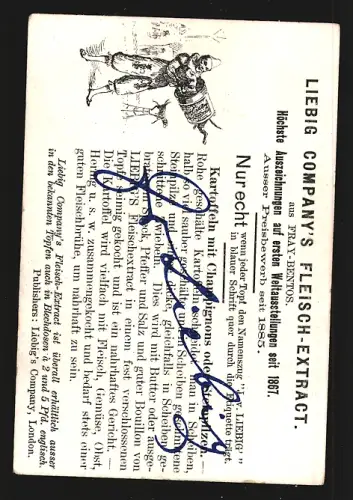 LIEBIG COMPANY'S FLEISCH-EXTRACT.
aus FRAY-BENTOS.
Höchste Auszeichnungen auf ersten Weltausstellungen seit 1867.
Ausser Preisbewerb seit 1885.
Nur echt wenn jeder Topf den Namenszug "J. v. LIEBIG"
in blauer Schrift quer durch die Etiquette trägt.
Kartoffeln mit Champignons oder
Rohe geschälte Kartoffeln schneidet man in Scheiben,
halb so viel sauber geschälte in Scheiben geschnittene
und gleichfalls in Scheiben ge-
Dies wird mit Butter oder ausge-
Pfeffer und Salz und guter Bouillon von
LIEBIG'S Fleischextract in einem fest verschlossenen
Topf gekocht und ist ein nahrhaftes Gericht. —
Die Kartoffel wird vielfach mit Fleisch, Gemüse, Obst,
Hering u. s. w. zusammengekocht und bedarf stets einer
guten Fleischbrühe, um nahrhaft zu sein.
Liebig Company's Fleisch-Extract ist überall erhältlich ausser
in den bekannten Töpfen auch in Blechdosen à 2 und 5 Pfd. englisch.
Publishers: Liebig's Company, London.
J v Liebig